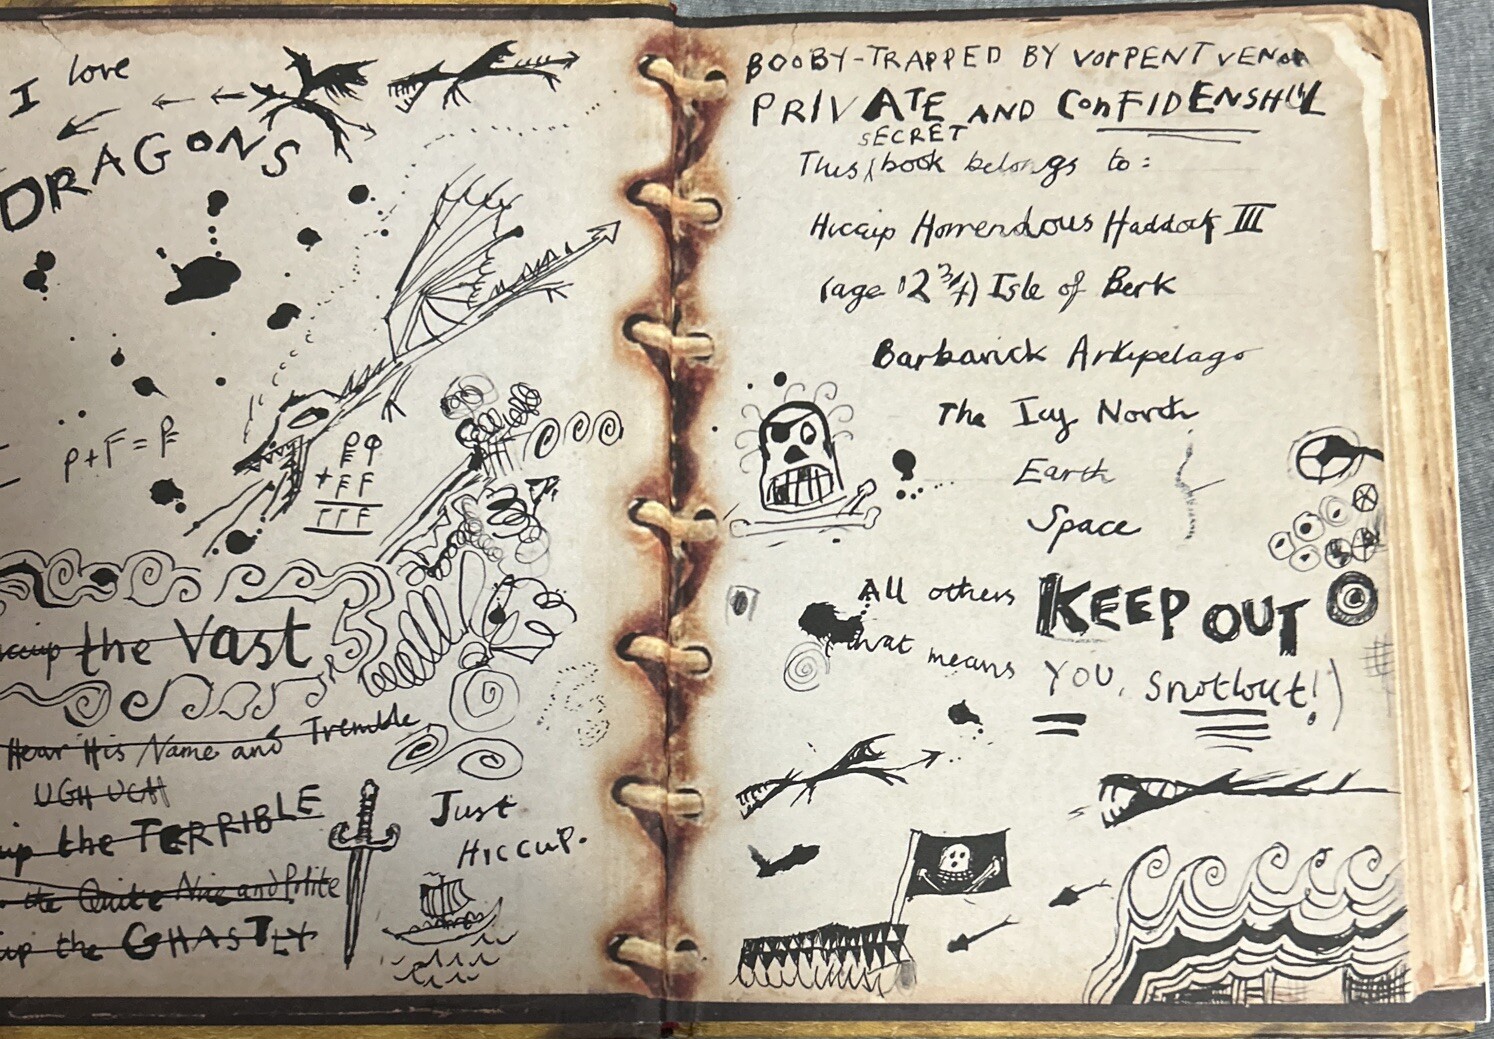 I love
DRAGONS
P+F=F
the Vast
Hear His Name and Tremble
UGH UGH
the TERRIBLE
the Quite Nice and Polite
the GHASTLY
Just
Hiccup.
BOOBY-TRAPPED BY VORPENT VENOM
PRIVATE AND CONFIDENSHUL
SECRET
This book belongs to:
Hiccup Horrendous Haddock III
(age 12 3/4) Isle of Berk
Barbarick Arkipelago
The Icy North
Earth
Space
All others KEEP OUT
that means YOU, Snotlout!)